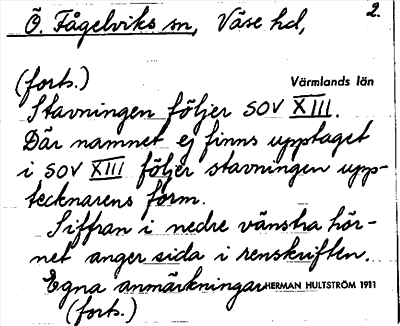 Ö. Fågelviks sn, Väse hd, 2.
(forts.) Värmlands län
Stavningen följer SOV XIII.
Där namnet ej finns upptaget
i SOV XIII följer stavningen upp-
tecknarens form.
Siffran i nedre vänstra hör-
net anger sida i renskriften.
Egna anmärkningar HERMAN HULTSTRÖM 1911
(forts.)